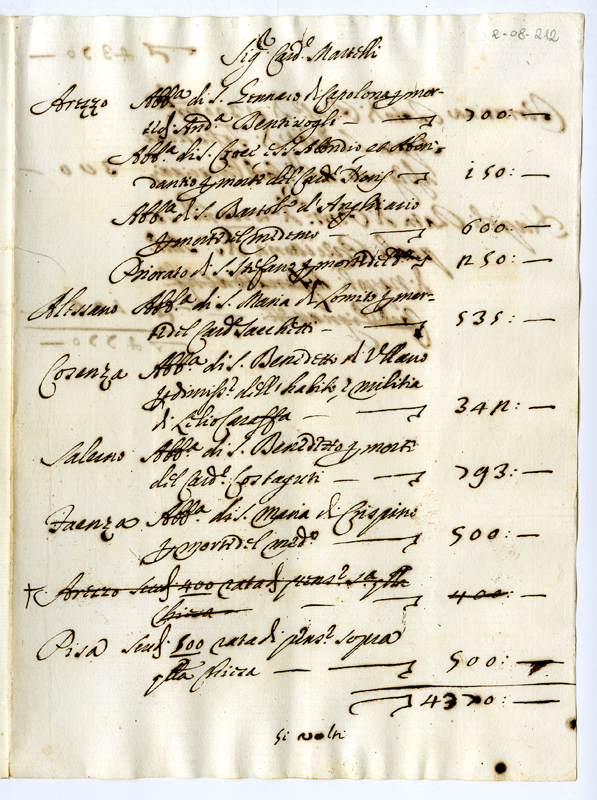 2-08-212
Sig.r Card.l Martelli
Arezzo Abb.a di S. Gennaro di Capolona p mor-
te di And.a Bentivogli — 700: —
Abb.a di S. e SS.
dantio p morte del Card. 150: —
Abb.a di S. Bartol.o d'Anghiari
p morte del med.mo — 600: —
Priorato di S. Stefano p morte del d.o 250: —
Abb.a di S. Maria di p mor-
te del Card. Sacchetti — 535: —
Cosenza Abb.a di S. Benedetto d'Ullano
p dimiss.e dell'habito e militia
di Lelio Caraffa — 342: —
Abb.a di S. Benedetto p morte
del Card.l Costaguti — 793: —
Faenza Abb.a di S. Maria di Crispino
p morte del med.o — 500: —
† Arezzo scudi 400 rata di pens.e s.a q.lla
Chiesa — 400: —
Pisa scudi 500 rata di pens.e sopra
q.lla Chiesa — 500: —
4370: —
Si volti